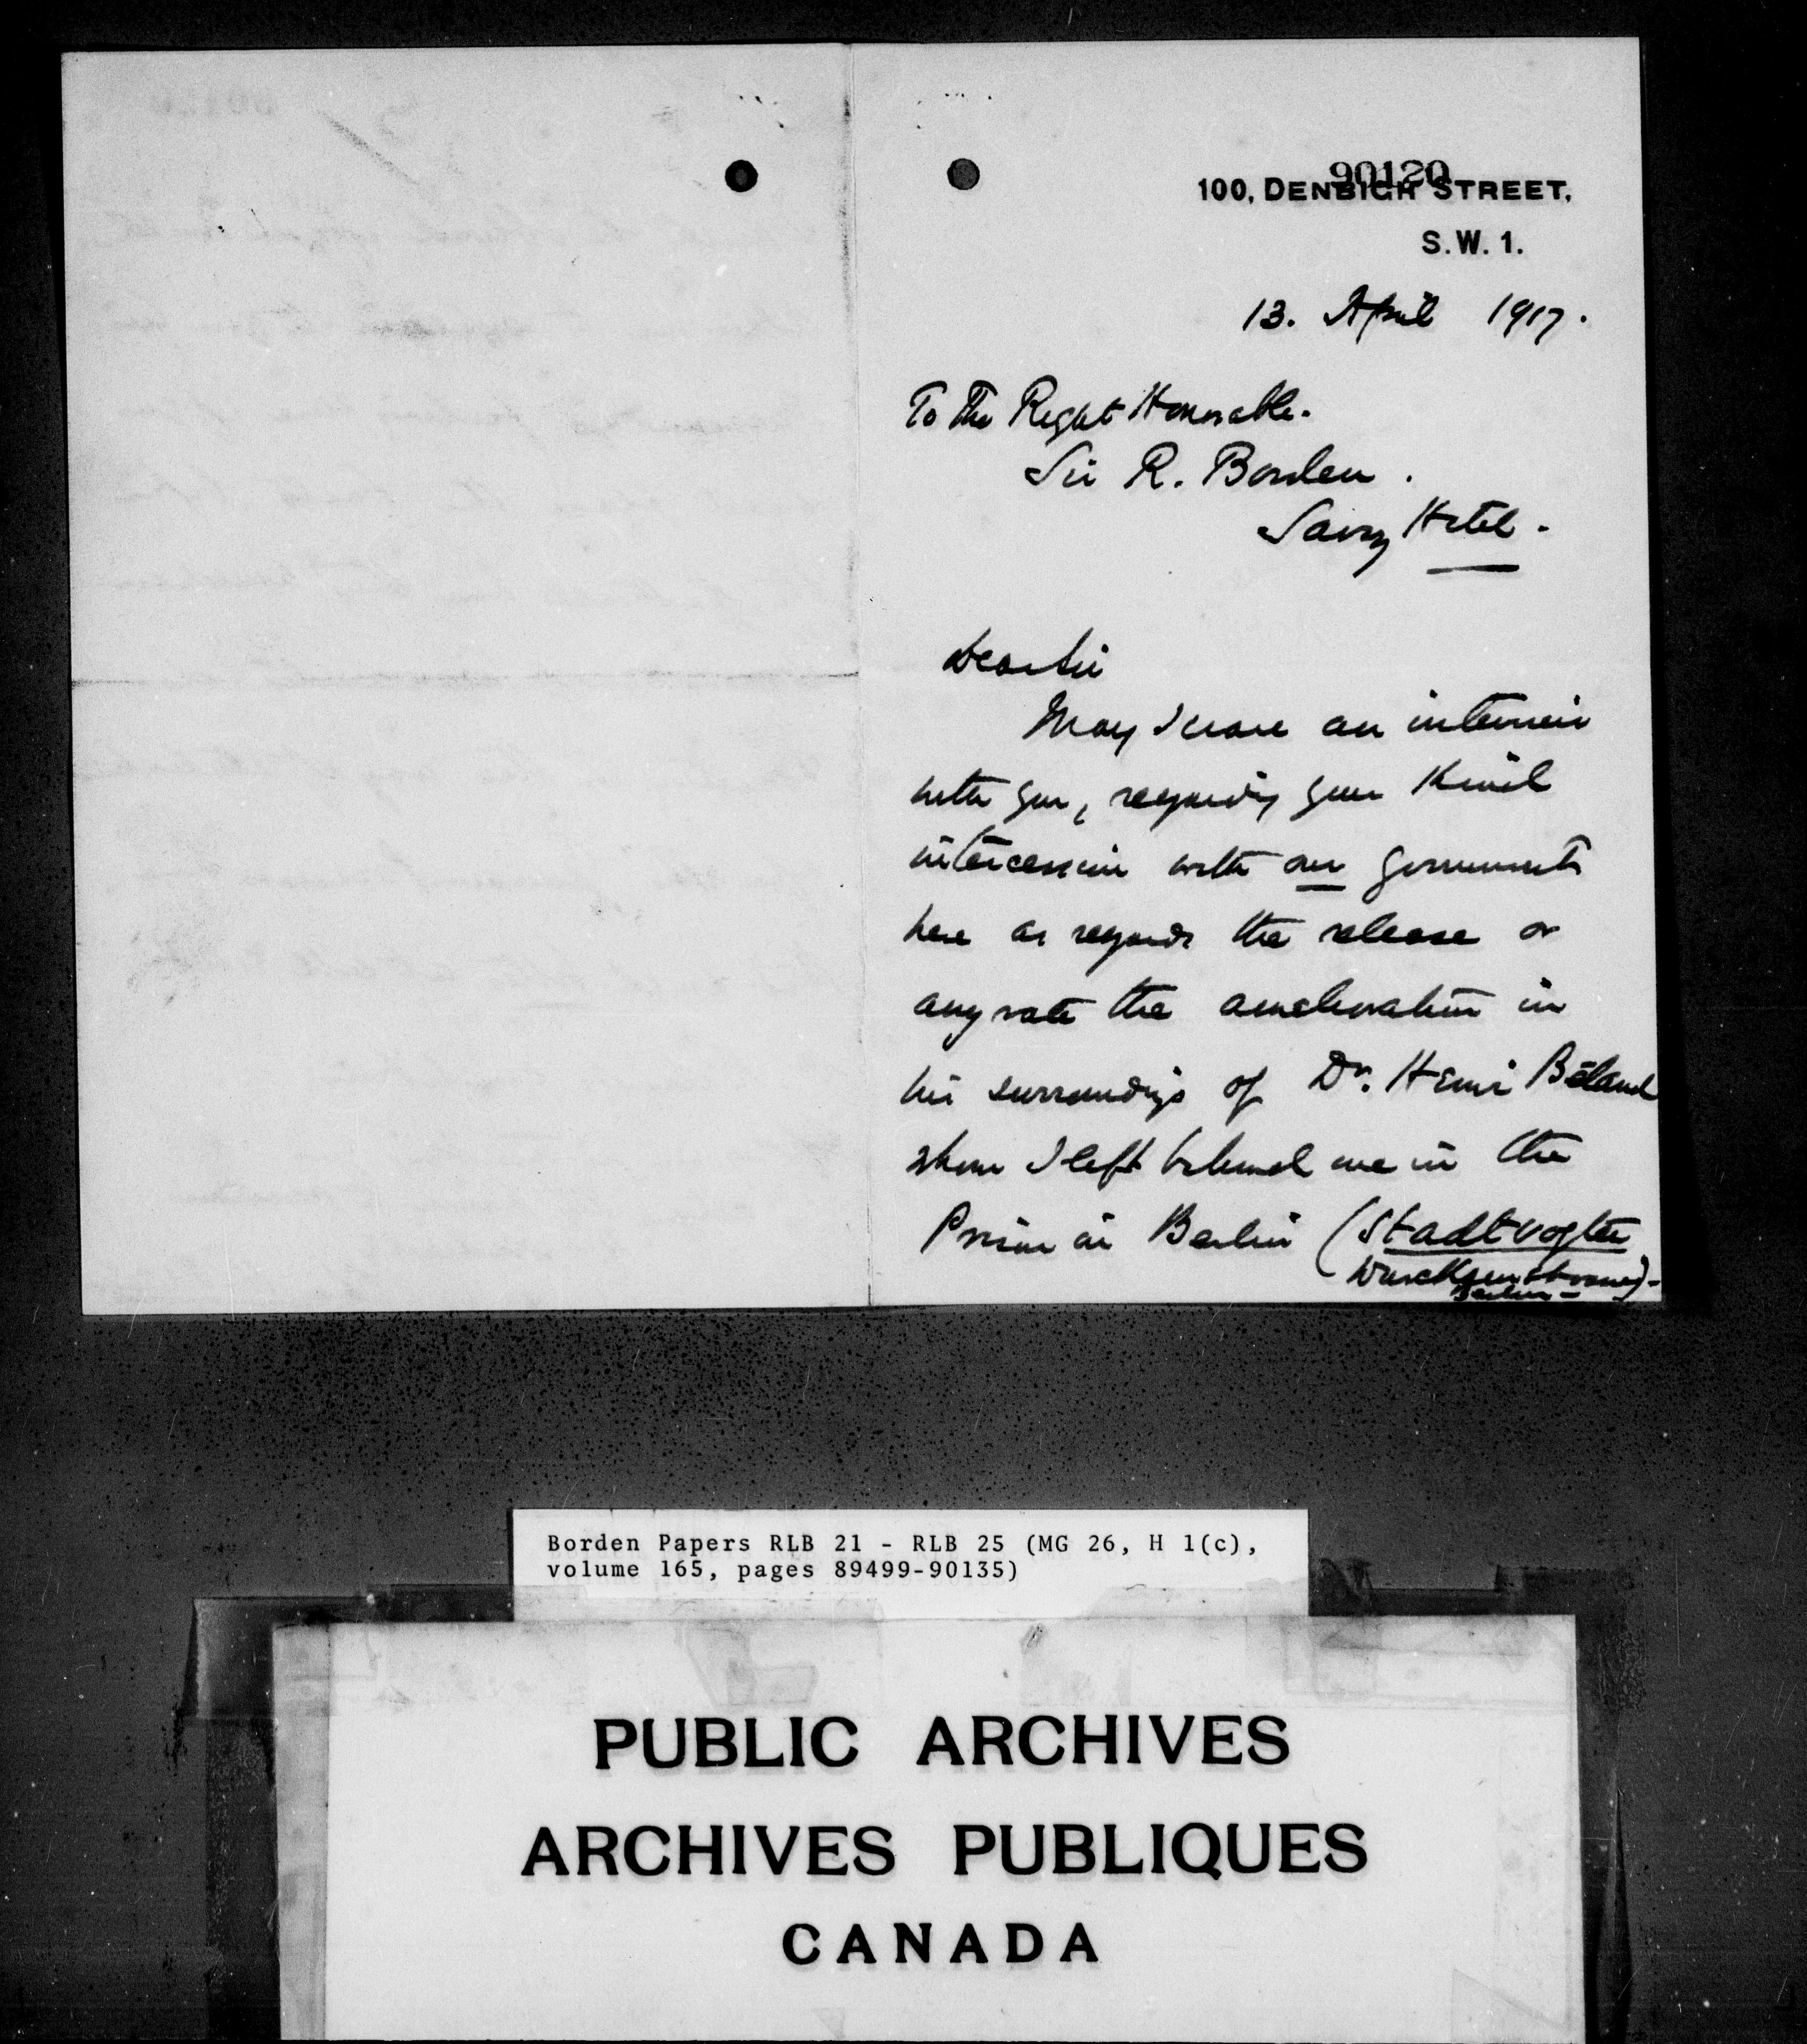 90120
100, DENBIGH STREET,
S.W. 1.
13. April 1917.
To The Right Honorable.
Sir R. Borden.
Savoy Hotel.
Dear Sir
May I crave an interview
with you, regarding your kind
intercession with our government
here as regards the release or
any rate the amelioration in
his surroundings of Dr. Henri Béland
whom I left behind me in the
Prison in Berlin (Stadtvogtei
Dircksenstrasse)-
Berlin-
Borden Papers RLB 21 - RLB 25 (MG 26, H 1(c),
volume 165, pages 89499-90135)
PUBLIC ARCHIVES
ARCHIVES PUBLIQUES
CANADA